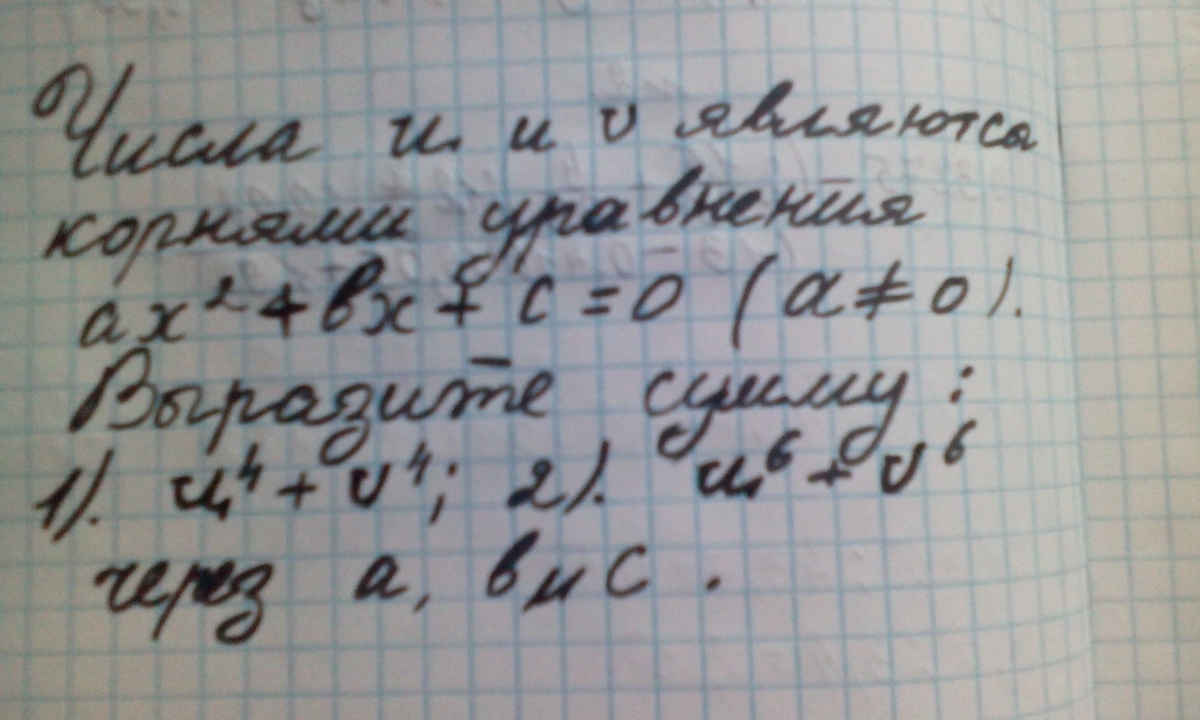 Числа u и v являются
корнями уравнения
ax² + вx + c = 0 (a ≠ 0).
Выразите сумму:
1). u⁴ + v⁴; 2). u⁶ + v⁶
через a, в и c.